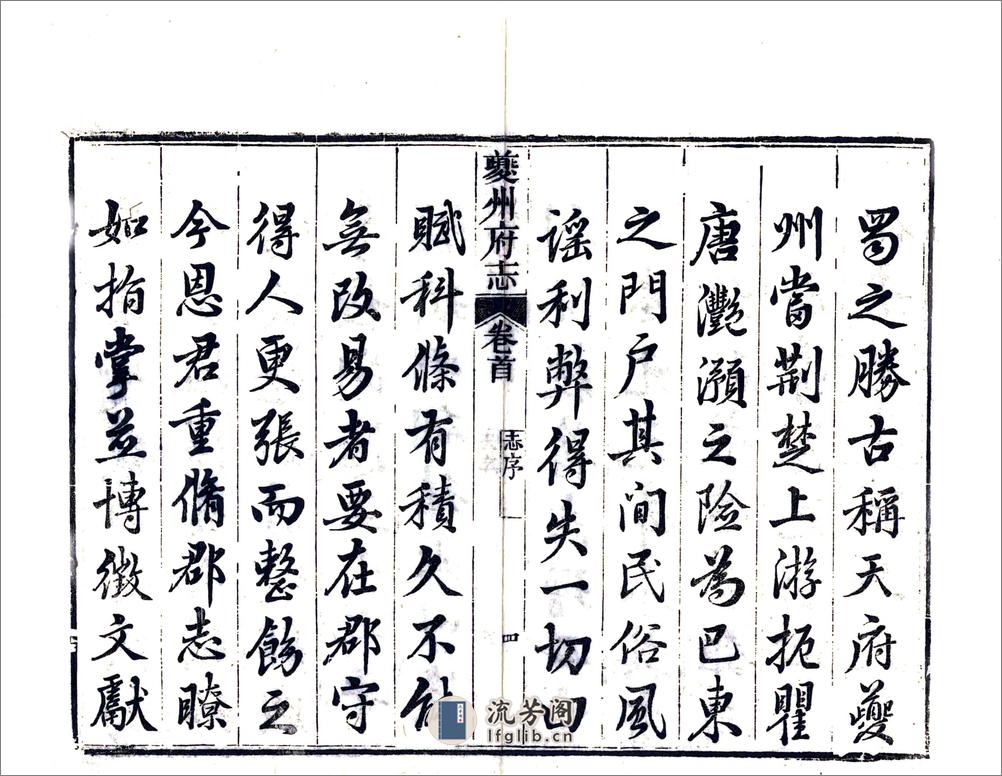 蜀之勝古稱天府夔
州當荆楚上游扼瞿
唐灩澦之險為巴東
之門户其间民俗風
謡利弊得失一切田
夔州府志 卷首 志序 四
賦科條有積久不能
無改易者要在郡守
得人更張而整飭之
今恩君重脩郡志瞭
如指掌並博徵文獻
流芳阁
lfglib.cn